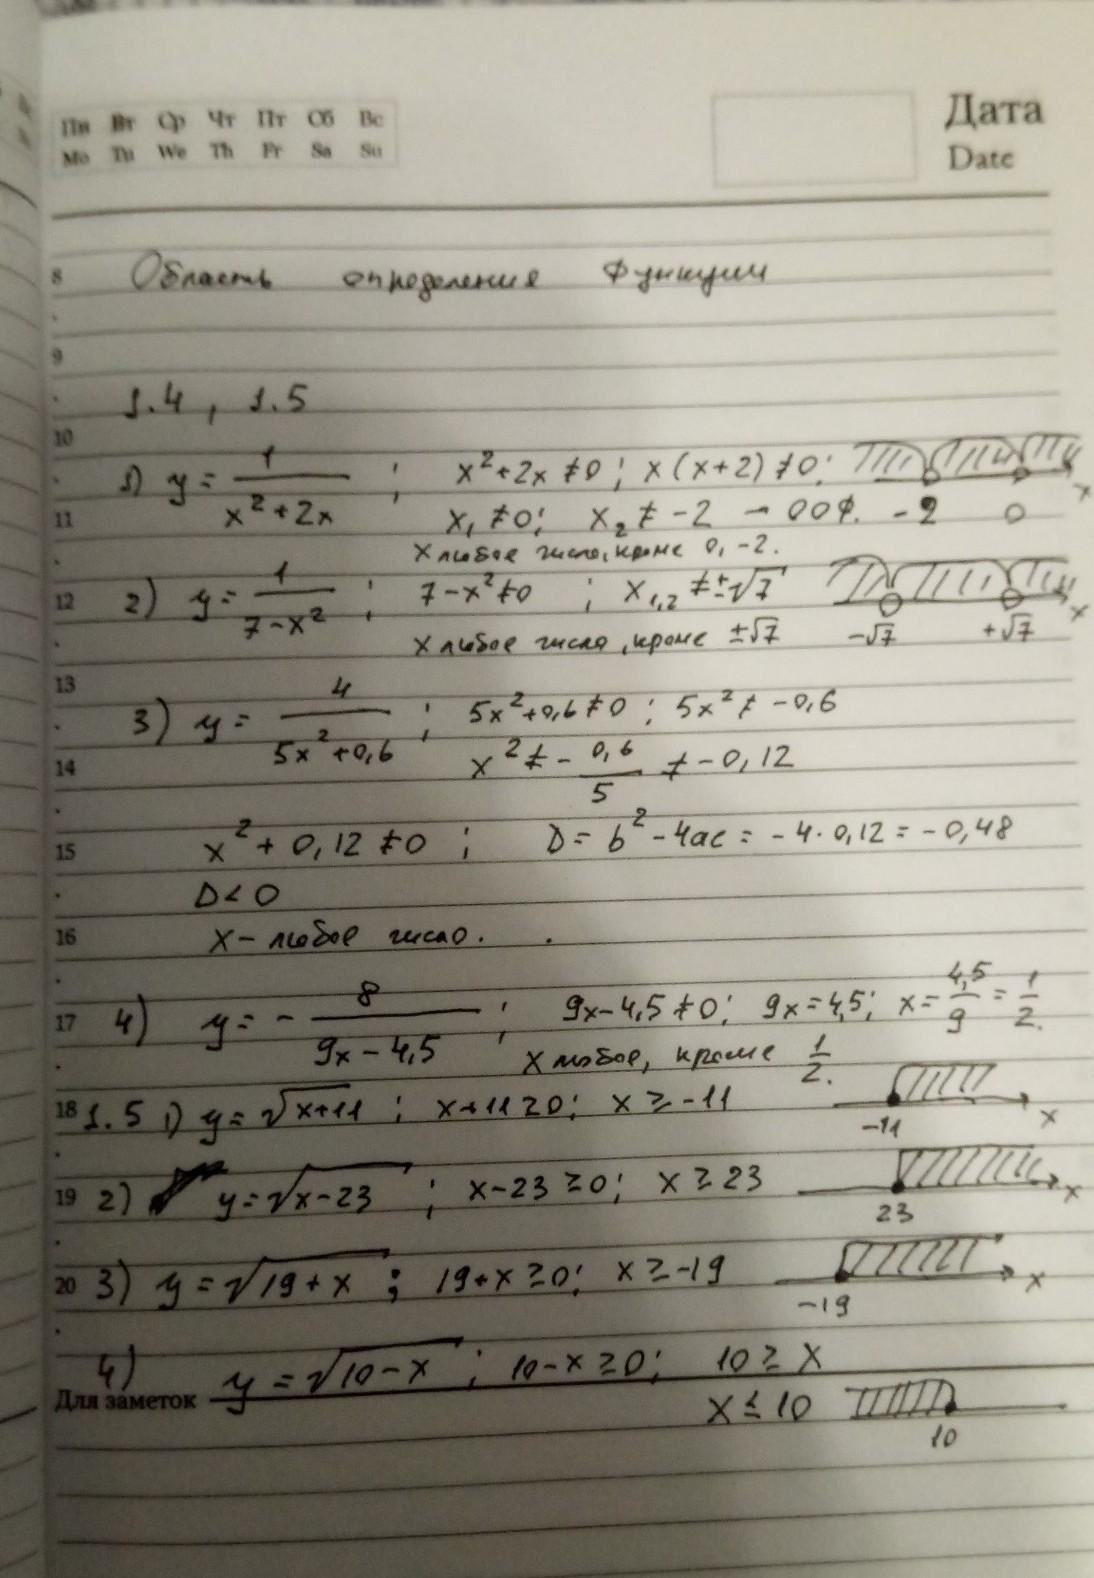 Пн Вт Ср Чт Пт Сб Вс
Mo Tu We Th Fr Sa Su
Дата
Date
8 Область определения функции
9
1.4, 1.5
10
1) y = 1/(x² + 2x) ; x² + 2x ≠ 0 ; x(x+2) ≠ 0 ; x
11 x₁ ≠ 0; x₂ ≠ -2 - ООФ. -2 0
x любое число, кроме 0, -2.
12 2) y = 1/(7-x²) ; 7-x² ≠ 0 ; x₁,₂ ≠ ±√7 x
x любое число, кроме ±√7 -√7 +√7
13
3) y = 4/(5x² + 0,6) ; 5x² + 0,6 ≠ 0 ; 5x² ≠ -0,6
14 x² ≠ - 0,6/5 ≠ -0,12
15 x² + 0,12 ≠ 0 ; D = b² - 4ac = -4·0,12 = -0,48
D < 0
16 x - любое число.
17 4) y = - 8/(9x - 4,5) ; 9x - 4,5 ≠ 0; 9x = 4,5; x = 4,5/9 = 1/2.
x любое, кроме 1/2.
18 1.5 1) y = √(x+11) ; x+11 ≥ 0; x ≥ -11 -11 x
19 2) y = √(x-23) ; x-23 ≥ 0; x ≥ 23 23 x
20 3) y = √(19+x) ; 19+x ≥ 0; x ≥ -19 -19 x
4) y = √(10-x) ; 10-x ≥ 0; 10 ≥ x
Для заметок x ≤ 10 10